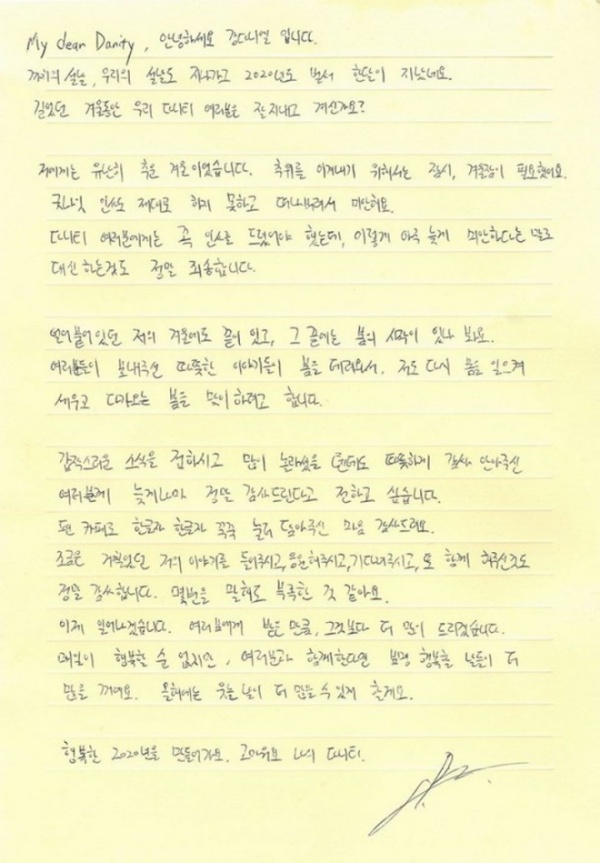 My dear Danity, 안녕하세요 강다니엘 입니다.
까치의 설날, 우리의 설날도 지나가고 2020년도 벌써 한달이 지났네요.
길었던 겨울동안 우리 다니티 여러분들 잘 지내고 계신가요?
저에게는 유난히 추운 겨울이었습니다. 추위를 이겨내기 위해서는 잠시, 겨울잠이 필요했어요.
굿나잇 인사도 제대로 하지 못하고 떠나버려서 미안해요.
다니티 여러분에게는 꼭 인사를 드렸어야 했는데, 이렇게 아주 늦게 미안하다는 말로
대신 하는것도 정말 죄송합니다.
얼어붙어있던 저의 겨울에도 끝이 있고, 그 끝에는 봄의 시작이 있나 봐요.
여러분들이 보내주신 따뜻한 이야기들이 봄을 데려와서. 저도 다시 몸을 일으켜
세우고 다가오는 봄을 맞이하려고 합니다.
갑작스러운 소식을 접하시고 많이 놀라셨을 텐데도 따뜻하게 감싸 안아주신
여러분께 늦게나마 정말 감사드린다고 전하고 싶습니다.
팬 카페로 한글자 한글자 꾹꾹 눌러 담아주신 마음 감사드려요.
조금은 거칠었던 저의 이야기를 들어주시고, 응원해주시고, 기다려주시고, 또 함께 해주신것도
정말 감사합니다. 몇번을 말해도 부족한 것 같아요.
이제 일어나겠습니다. 여러분에게 받은 만큼, 그것보다 더 많이 드리겠습니다.
매일이 행복할 순 없지만, 여러분과 함께한다면 분명 행복할 날들이 더
많을 꺼에요. 올해에는 웃는 날이 더 많을 수 있게 할게요.
행복한 2020년을 만들어가요. 고마워요 나의 다니티.